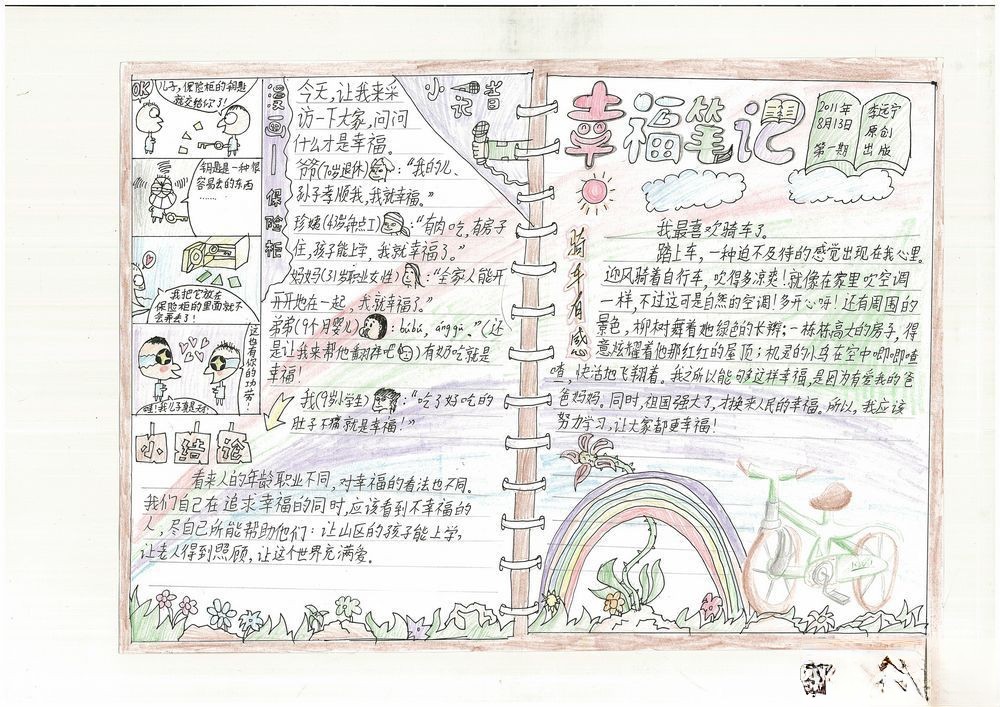 OK
儿子,保险柜的钥匙
就交给你了!
钥匙是一种很
容易丢的东西
……
我把它放在
保险柜的里面就不
会弄丢了!
这也有你的功劳!
哇!我儿子真是天才
漫画——保险柜
小记者
今天,让我来采
访一下大家,问问
什么才是幸福。
爷爷(70岁退休):“我的儿、
孙子孝顺我,我就幸福。”
珍姨(43岁钟点工):“有肉吃,有房子
住,孩子能上学,我就幸福了。”
妈妈(31岁职业女性):“全家人能开
开开地在一起,我就幸福了。”
弟弟(9个月婴儿):bú bú,
(还
是让我来帮他翻译吧)有奶吃就是
幸福!
我(9岁小学生):“吃了好吃的
肚子不痛就是幸福!”
小结论
看来人的年龄职业不同,对幸福的看法也不同。
我们自己在追求幸福的同时,应该看到不幸福的
人,尽自己所能帮助他们:让山区的孩子能上学,
让老人得到照顾,让这个世界充满爱。
幸福笔记
2011年
8月13日
第一期
李远宁
原创
出版
骑车有感
我最喜欢骑车了。
踏上车,一种迫不及待的感觉出现在我心里。
迎风骑着自行车,吹得多凉爽!就像在家里吹空调
一样,不过这可是自然的空调!多开心呀!还有周围的
景色,柳树舞着她绿色的长辫;一栋栋高大的房子,得
意炫耀着他那红红的屋顶;机灵的小鸟在空中唧唧喳
喳,快活地飞翔着。我之所以能够这样幸福,是因为有爱我的爸
爸妈妈。同时,祖国强大了,才换来人民的幸福。所以,我应该
努力学习,让大家都更幸福!